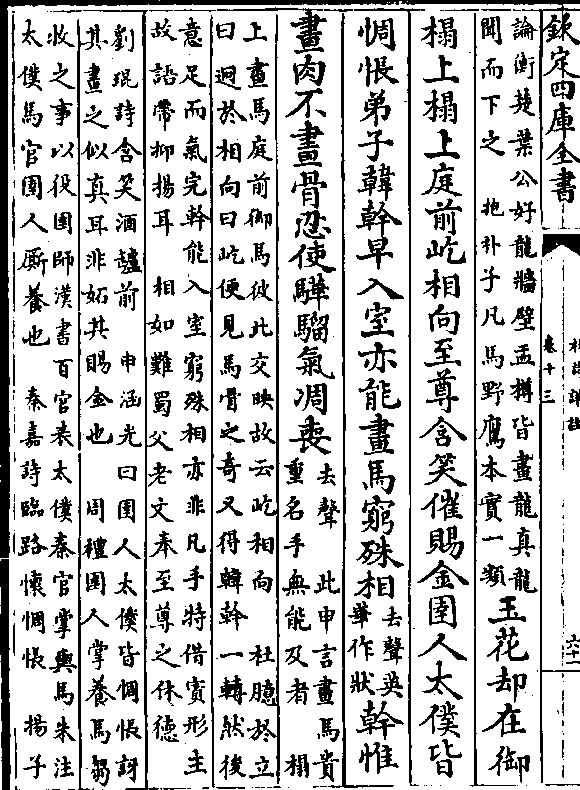 欽定四庫全書
杜詩詳註
卷十三
論衡楚葉公好龍牆壁盂樽皆畫龍真龍
聞而下之　抱朴子凡馬野鷹本實一類
玉花却在御
榻上榻上庭前屹相向至尊含笑催賜金圉人太僕皆
惆悵弟子韓幹早入室亦能畫馬窮殊相
去聲英
華作狀
幹惟
畫肉不畫骨忍使驊騮氣凋喪
去聲　此申言畫馬貴
重名手無能及者　榻
上畫馬庭前御馬彼此交映故云屹相向　杜臆於立
曰迥於相向曰屹便見馬骨之奇又得韓幹一轉然後
意足而氣完幹能入室窮殊相亦非凡手特借賓形主
故語帶抑揚耳　相如難蜀父老文奉至尊之休德
劉琨詩含笑酒罏前　申涵光曰圉人太僕皆惆悵訝
其畫之似真耳非妬其賜金也　周禮圉人掌養馬芻
牧之事以役圉師漢書百官表太僕秦官掌輿馬朱注
太僕馬官圉人厮養也　秦嘉詩臨路懷惆悵　揚子